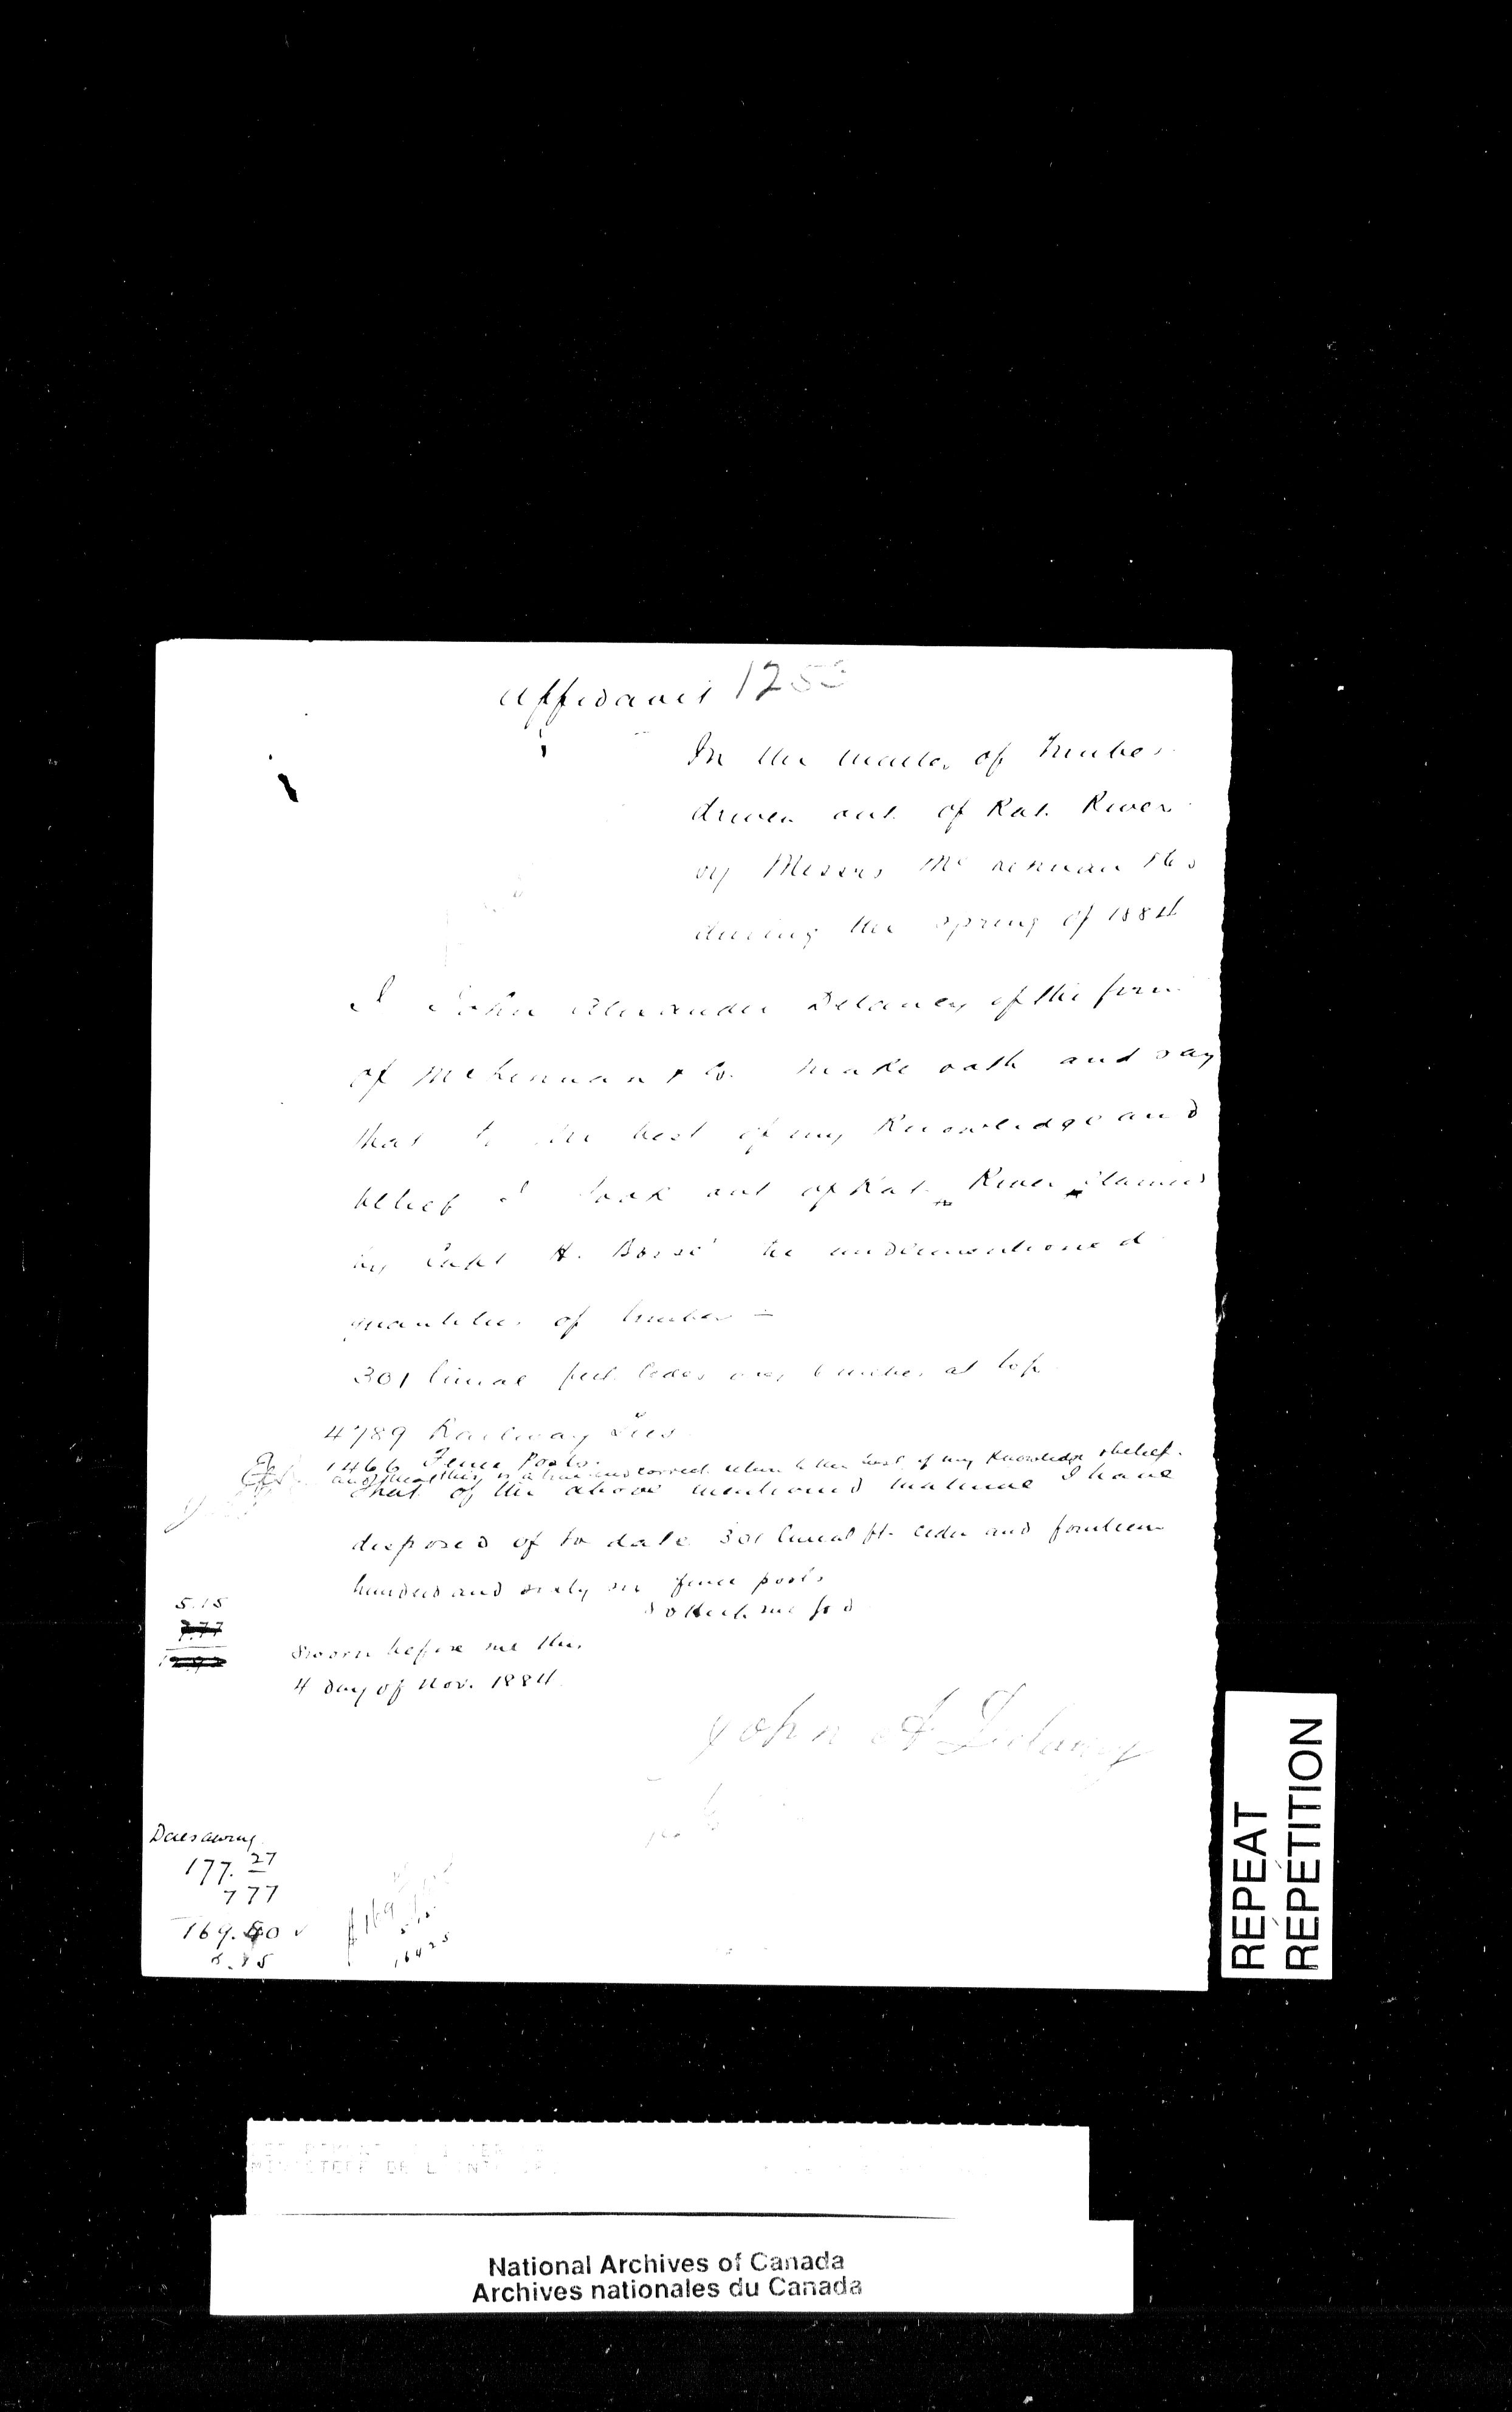 Affidavit 125
In the matter of Timber
driven out of Rat River
by Messrs Mc Lennan & Co
during the spring of 1884
I John Alexander Delaney of the firm
of McLennan & Co. make oath and say
that to the best of my Knowledge and
belief I took out of Rat River claimed
by Capt H. Bossé the undermentioned
quantities of timber =
301 lineal feet Cedar over 6 inches at top.
4789 Railway Ties
1466 Fence Posts.
and that this is a true and correct return to the best of my Knowledge & belief.
That of the above mentioned material I have
disposed of to date 301 lineal ft. Cedar and fourteen
hundred and sixty six fence posts
So Help me God
5.15
7.77
Sworn before me this
4 day of Nov. 1884.
John A Delaney
Dues owing
177.27
777
169.50
5.15
$169
164 25
REPEAT
RÉPÉTITION
MINISTERE DE L'INT
National Archives of Canada
Archives nationales du Canada